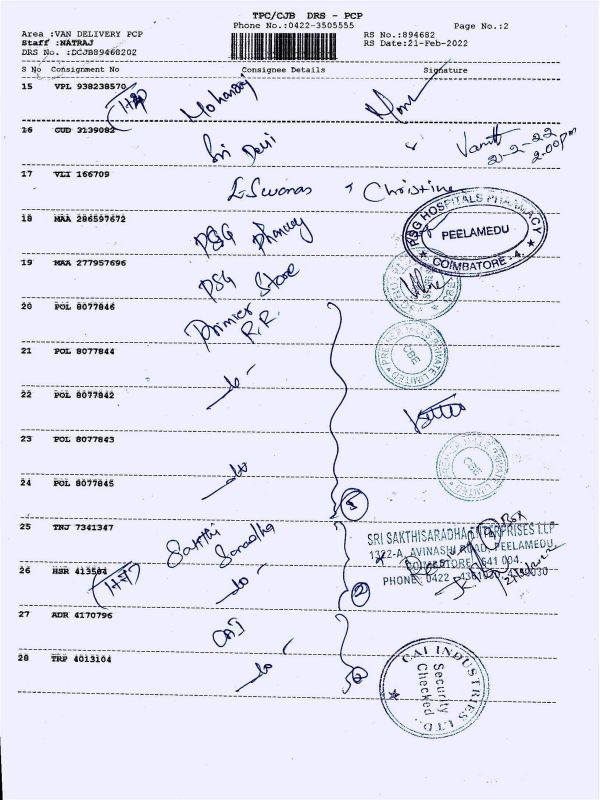 TPC/CJB DRS - PCP
Phone No.:0422-3505555
Page No.:2
Area :VAN DELIVERY PCP
RS No.:894682
Staff :NATRAJ
RS Date:21-Feb-2022
DRS No. :DCJB89468202
S No Consignment No Consignee Details Signature
15 VPL 938238570 Mohanraj
16 GUD 3139082 Sri Devi
21-2-22
2.00pm
17 VLI 166709 Christine
18 MAA 286597672 PSG Pharmacy
PSG HOSPITALS PHARMACY
PEELAMEDU
COIMBATORE - 4.
19 MAA 277957696 PSG Store
20 POL 8077846 Primier
R.R.
PRIVATE LIMITED
CBE
21 POL 8077844 do
22 POL 8077842
23 POL 8077843
CBE
24 POL 8077845 do
5
25 TNJ 7341347 Sakthi Saradha
SRI SAKTHISARADHA ENTERPRISES LLP
1322-A, AVINASHI ROAD, PEELAMEDU,
COIMBATORE - 641 004.
PHONE : 0422
26 HSR 413504 do
2
27 ADR 4170796 CAI
28 TRP 4013104 do
2
CAI INDUSTRIES LTD.,
Security
Checked